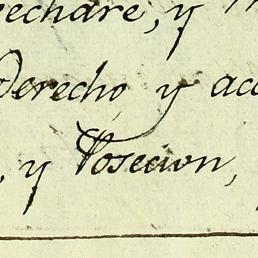 echare, y
Derecho, y acc
, y Posecion,